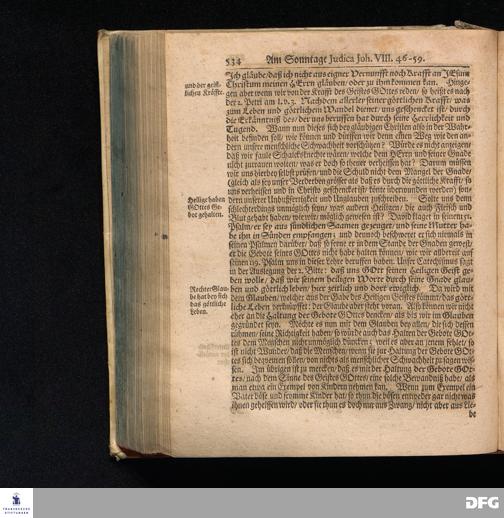 534 Am Sonntage Judica Joh. VIII. 46-59.
Ich gläube/ daß ich nicht aus eigner Vernunfft noch Krafft an JEsum
Christum meinen HErrn gläuben/ oder zu ihm kommen kan. Hinge-
und der geist-
lichen Kräffte.
gen aber wenn wir von der Krafft des Geistes GOttes reden/ so heist es nach
der 2. Petri am 1. v. 3. Nachdem allerley seiner göttlichen Krafft/ was
zum Leben und göttlichem Wandel dienet/ uns geschencket ist/ durch
die Erkäntniß des/ der uns beruffen hat durch seine Herrlichkeit und
Tugend. Wann nun dieses sich bey gläubigen Christen also in der Wahr-
heit befunden soll/ wie können und dürffen wir denn einen Weg wie den an-
dern unsere menschliche Schwachheit vorschützen? Würde es nicht anzeigen/
daß wir faule Schalcksknechte wären/ welche dem HErrn und seiner Gnade
nicht zutrauen wolten/ was er doch so theuer verheissen hat? Darum müssen
wir uns hierbey selbst prüfen/ und die Schuld nicht dem Mangel der Gnade/
(gleich als sey unser Verderben grösser als daß es durch die göttliche Krafft/ so
uns verheissen und in Christo geschencket ist/ könte überwunden werden) son-
dern unserer Unbußfertigkeit und Unglauben zuschreiben. Solte uns denn
Heilige haben
GOttes Ge-
bot gehalten.
schlechterdings unmöglich seyn/ was andern Heiligen/ die auch Fleisch und
Blut gehabt haben/ wie wir/ möglich gewesen ist? David klaget in seinem 51.
Psalm/ er sey aus sündlichen Saamen gezeuget/ und seine Mutter ha-
be ihn in Sünden empfangen; und dennoch beschweret er sich niemals in
seinen Psalmen darüber/ daß so ferne er in dem Stande der Gnaden gewest/
er die Gebote seines GOttes nicht habe halten können/ wie wir allbereit aus
seinen 119. Psalm uns in dieser Lehre beruffen haben. Unser Catechismus sagt
in der Auslegung der 2. Bitte: daß uns GOtt seinen Heiligen Geist ge-
ben wolle/ daß wir seinem heiligen Worte durch seine Gnade gläu-
Rechter Glau-
be hat bey sich
das göttliche
Leben.
ben und göttlich leben/ hier zeitlich und dort ewiglich. Da wird mit
dem Glauben/ welcher aus der Gabe des Heiligen Geistes kömmt/ das gött-
liche Leben verknüpffet: der Glaube aber stehet voran. Also können wir nicht
eher an die Haltung der Gebote GOttes dencken/ als bis wir im Glauben
gegründet seyn. Möchte es nun mit dem Glauben bey allen/ die sich dessen
rühmen/ seine Richtigkeit haben/ so würde auch das Halten der Gebote GOt-
tes dem Menschen nicht unmöglich düncken; weil es aber an jenem fehlet/ so
ist nicht Wunder/ daß die Menschen/ wenn sie zur Haltung der Gebote GOt-
tes sich bequemen sollen/ von nichts als menschlicher Schwachheit zu sagen wis-
sen. Im übrigen ist zu mercken/ daß es mit der Haltung der Gebote GOt-
tes/ nach dem Sinne des Geistes GOttes/ eine solche Bewandniß habe/ als
man etwa ein Exempel von Kindern nehmen kan. Wenn zum Exempel ein
Vater böse und fromme Kinder hat/ so thun die bösen entweder gar nicht was
ihnen geheissen wird/ oder sie thun es doch nur aus Zwang/ nicht aber aus Lie-
be
FRANCKESCHE
STIFTUNGEN
DFG